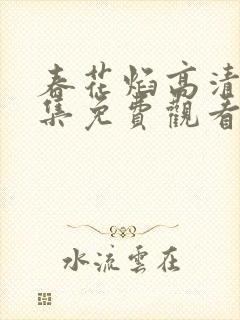 春花焰高清
集免費觀看
水流雲在